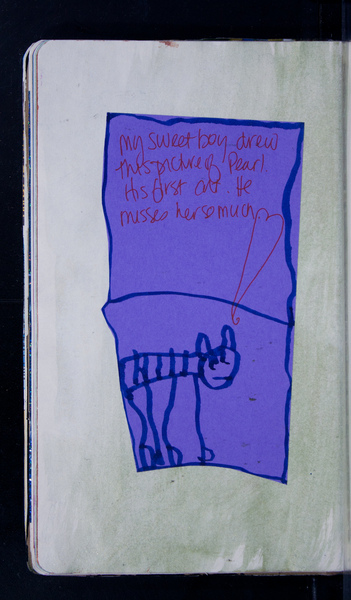 my sweet boy drew
this picture of Pearl.
His first cat. He
misses her so much